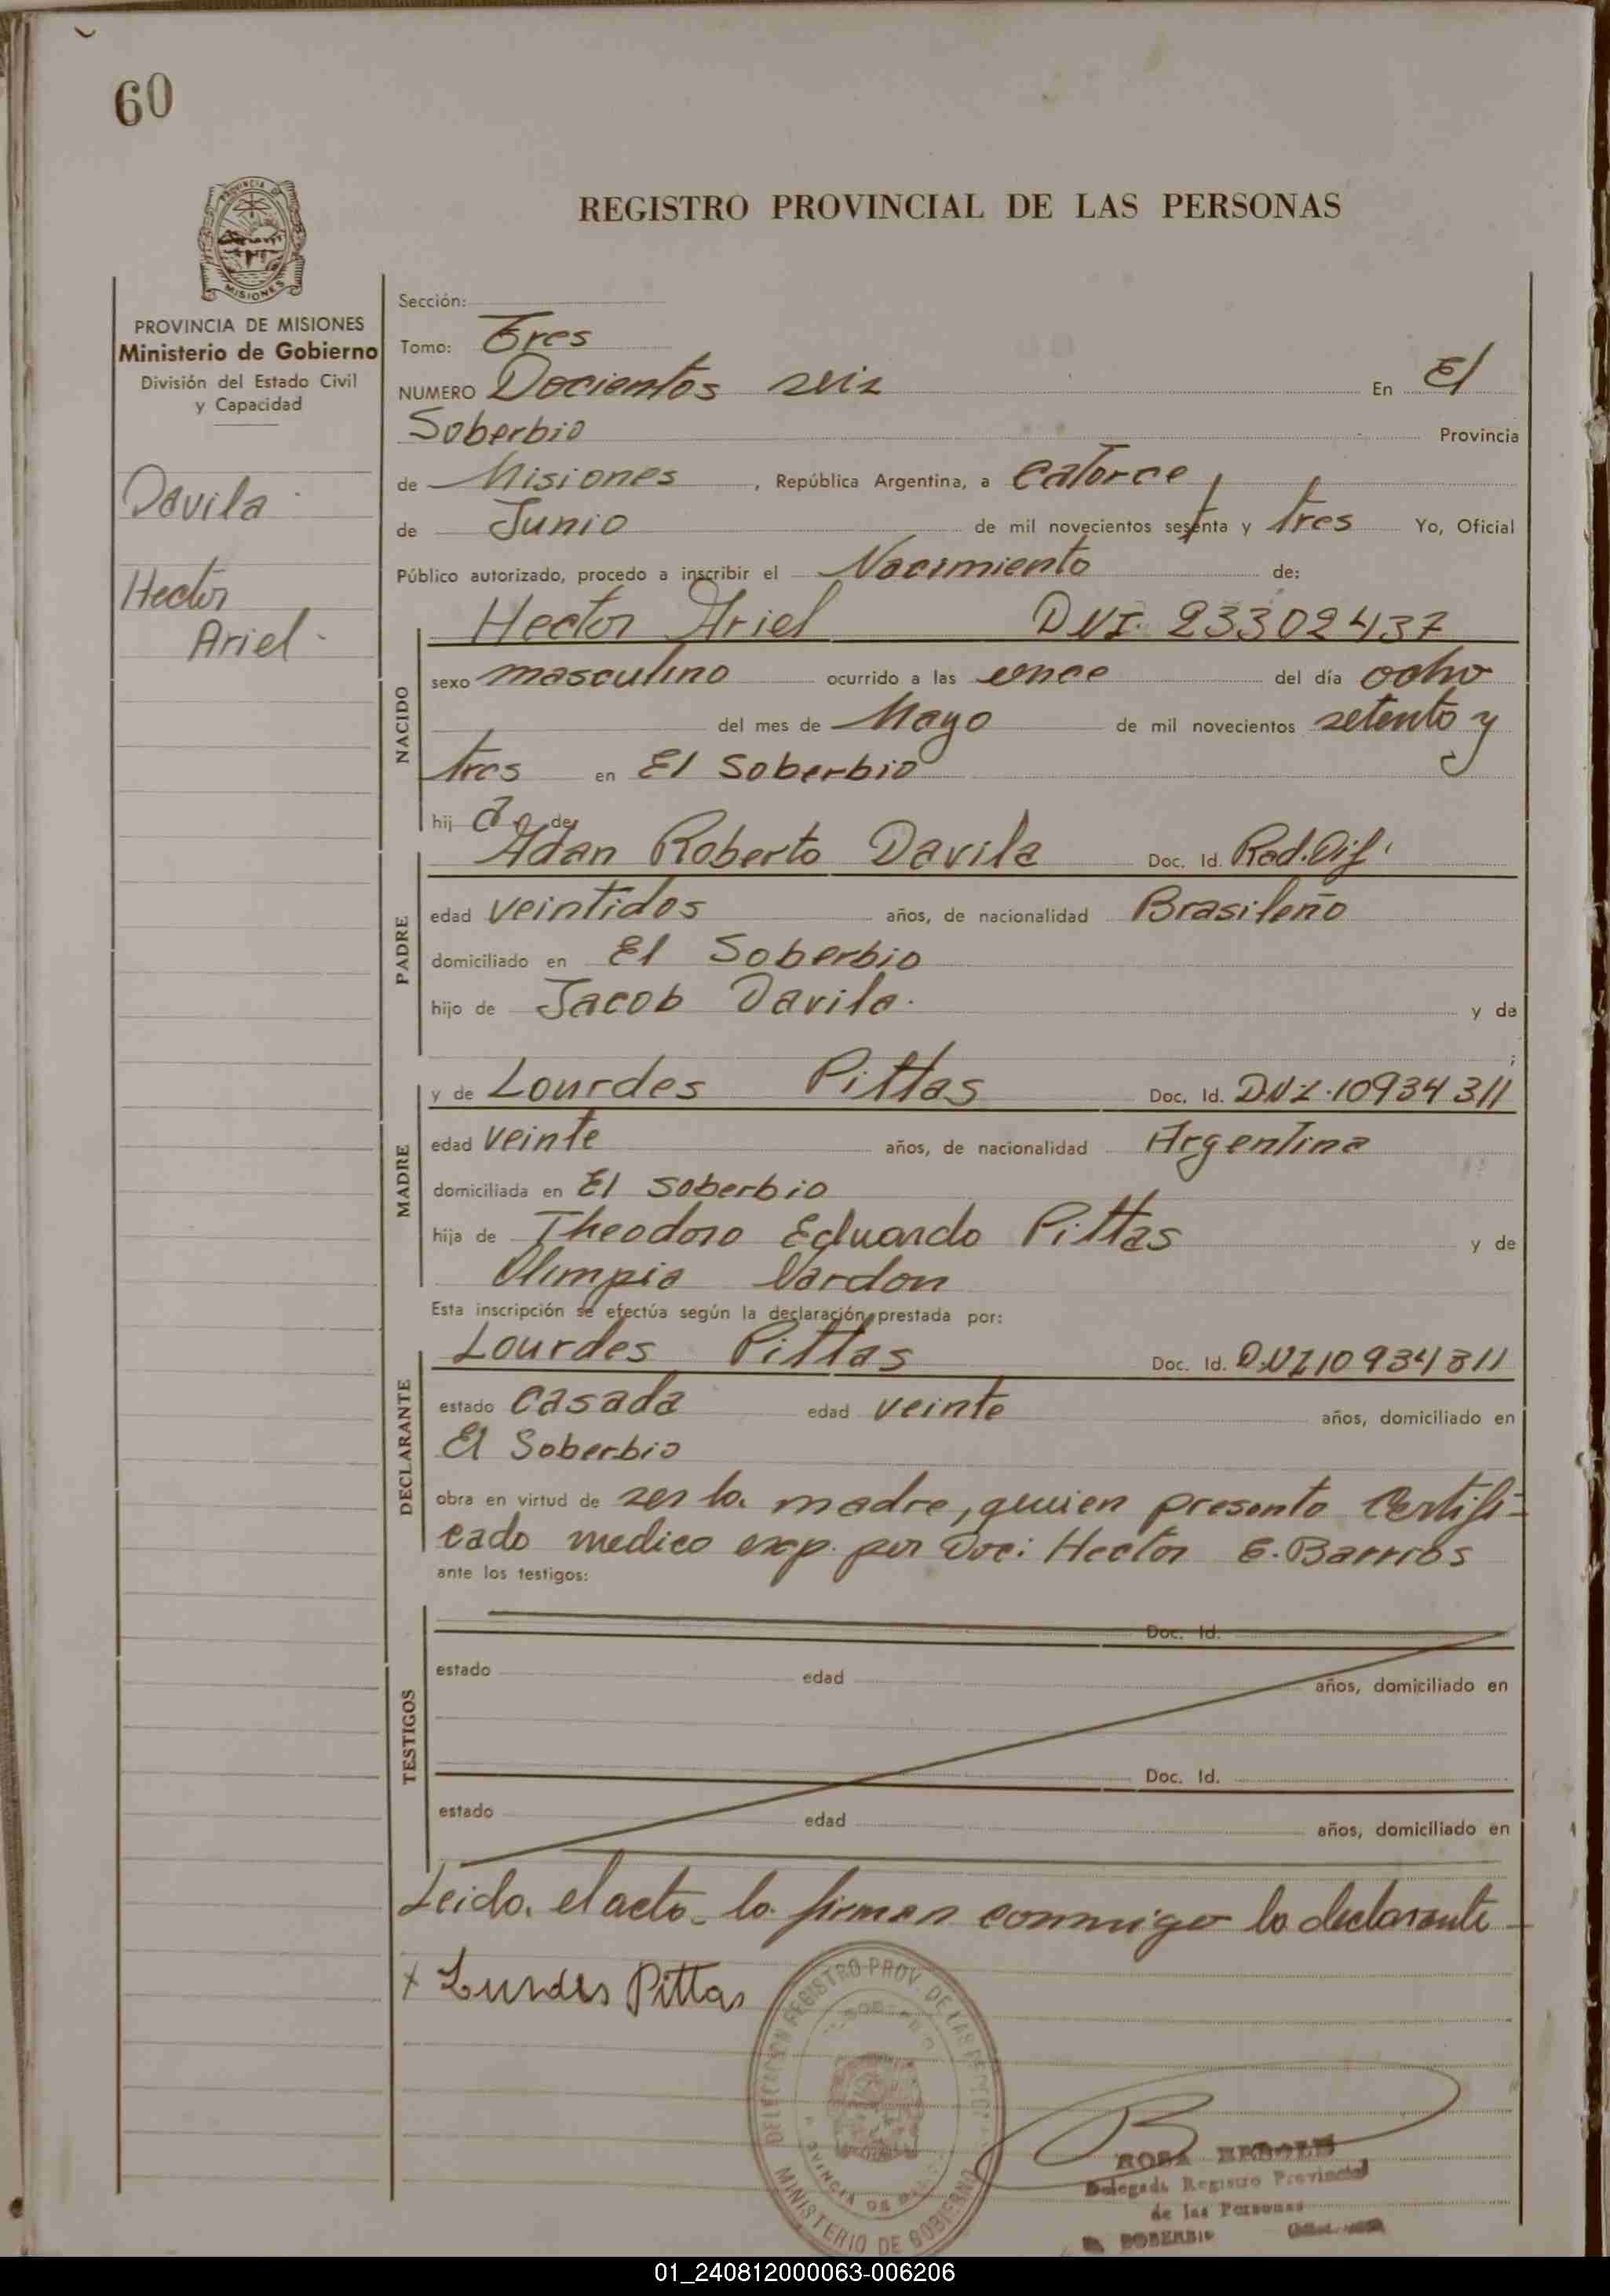 60
REGISTRO PROVINCIAL DE LAS PERSONAS
PROVINCIA DE MISIONES
Ministerio de Gobierno
División del Estado Civil
y Capacidad
Davila
Hector
Ariel
Sección:
Tomo: Tres
NUMERO Docientos seis En El
Soberbio Provincia
de Misiones, República Argentina, a catorce
de Junio de mil novecientos sesenta y tres Yo, Oficial
Público autorizado, procedo a inscribir el Nacimiento de:
Hector Ariel DNI. 23302437
NACIDO
sexo masculino ocurrido a las once del día ocho
del mes de Mayo de mil novecientos setenta y
tres en El Soberbio
hij o de
PADRE
Adan Roberto Davila Doc. Id. Rad. Dif.
edad veintidos años, de nacionalidad Brasileño
domiciliado en El Soberbio
hijo de Jacob Davila. y de
;
MADRE
y de Lourdes Pittas Doc. Id. DNI.10934311
edad veinte años, de nacionalidad Argentina
domiciliada en El Soberbio
hija de Theodoro Eduardo Pittas y de
Olimpia Nardon
Esta inscripción se efectúa según la declaración prestada por:
DECLARANTE
Lourdes Pittas Doc. Id. DNI10934311
estado casada edad veinte años, domiciliado en
El Soberbio
obra en virtud de ser la madre, quien presento Certifi-
cado medico exp. por Doc: Hector E. Barrios
ante los testigos:
TESTIGOS
Doc. Id.
estado edad años, domiciliado en
Doc. Id.
estado edad años, domiciliado en
Leida el acta la firman conmigo la declarante
x Lurdes Pittas
DELEGACION REGISTRO PROV. DE LAS PERSONAS
MINISTERIO DE GOBIERNO
ROSA
Delegada Registro Provincial
de las Personas
SOBERBIO
01_240812000063-006206